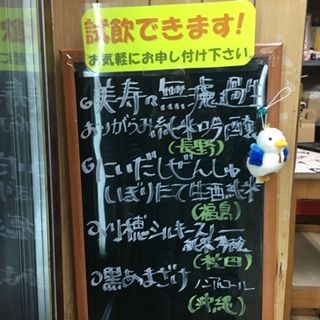 試飲できます!
お気軽にお申し付け下さい。
美寿々 無濾過生
ありがらみ 純米吟醸
(長野)
にいだしぜんしゅ
しぼりたて生酒 純米
(福島)
刈穂シルキースノー
(秋田)
黒あまざけ ノンアルコール
(沖縄)